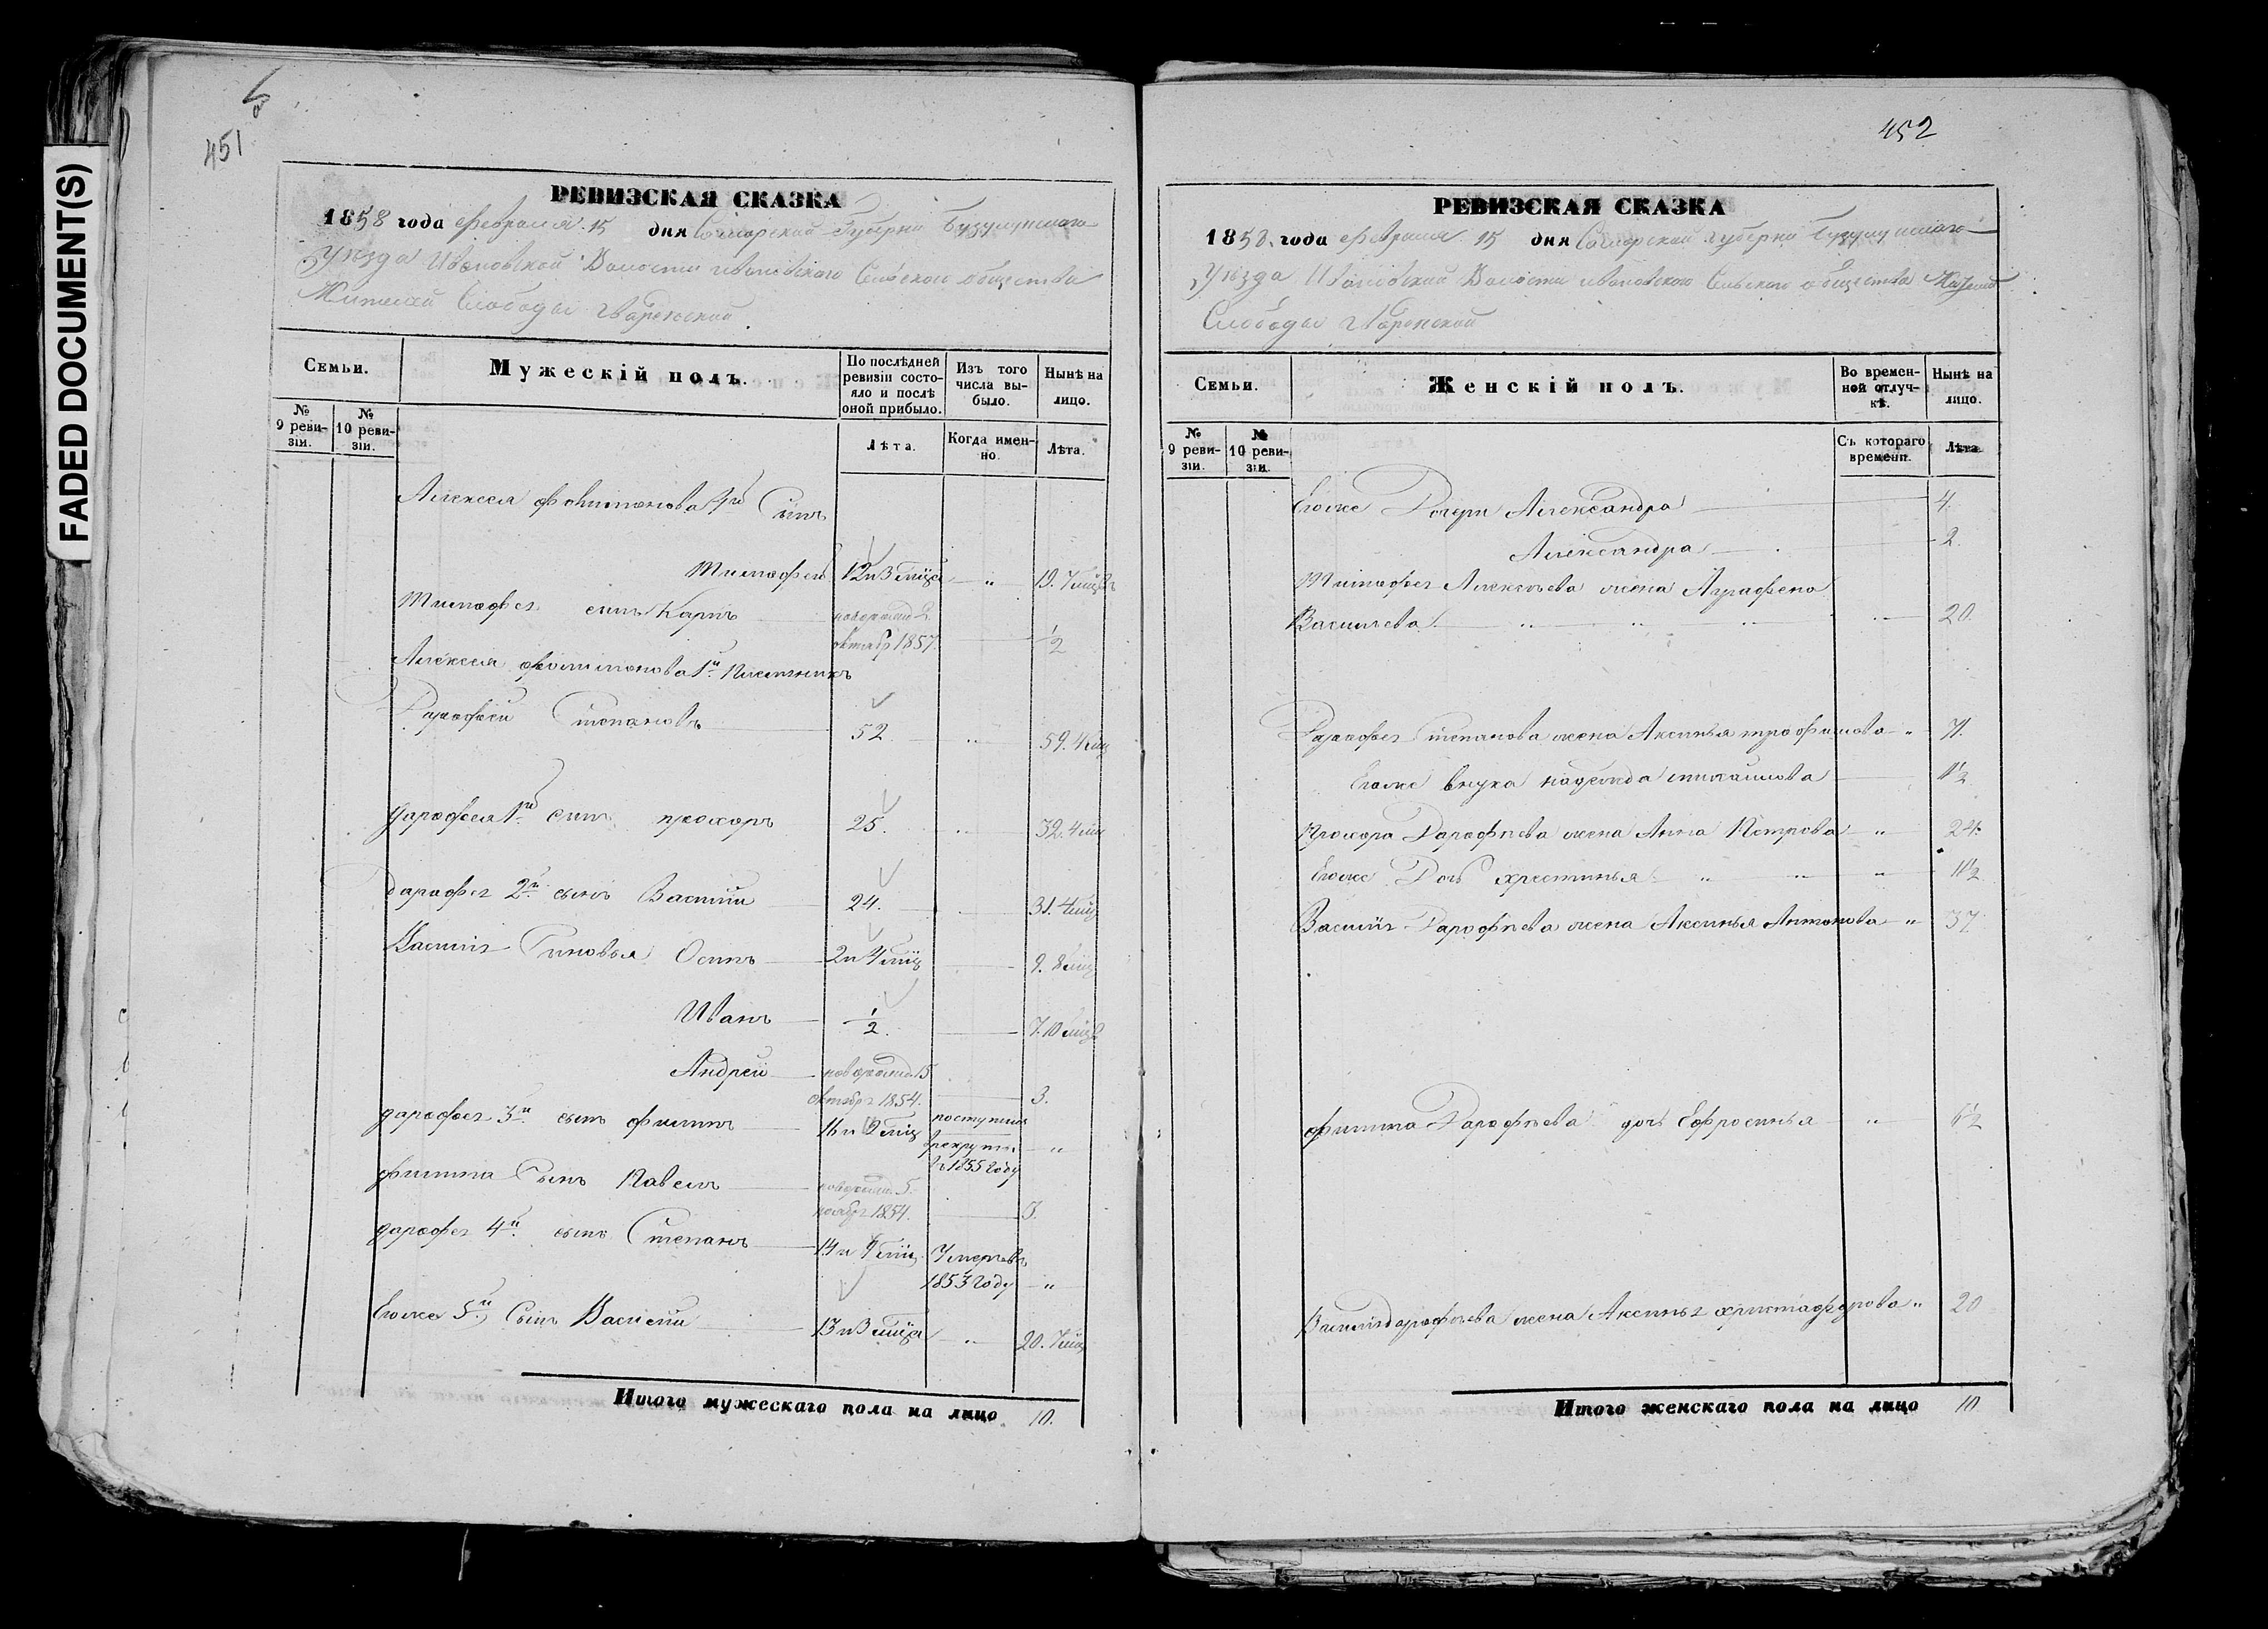 FADED DOCUMENT(S)
451
РЕВИЗСКАЯ СКАЗКА
1858 года февраля 15 дня Самарской Губерни Бузулукскаго
Уезда Ивановской Волости ивановскаго Сельскаго общества
Жителей Слободы
Семьи.
Мужескій полъ.
По послѣдней ревизіи состояло и послѣ оной прибыло.
Изъ того числа выбыло.
Нынѣ на лицо.
№ 9 ревизіи.
№ 10 ревизіи.
Лѣта.
Когда именно.
Лѣта.
Алексея 1й Сынъ
Тимофей 12 и 3 мца " 19. 7 мцв
Тимофея сынъ Карпъ новорожд 2
октябр 1857. 1/2
Алексея 1й Племянникъ
Дарофей Степановъ 52 " 59. 4 мц
дарофея 1й сынъ прохоръ 25. " 32. 4 мц
дарофея 2й сынъ Василий 24. 31. 4 мц
Василия Сыновья Осипъ 2 и 4 мц 9. 8 мц
Иванъ 1/2. 7. 10 мцв
Андрей новорожд. 15
октября 1854. 3.
дарофея 3й сынъ филипъ 16 и мц поступил
в рекруты "
в 1855 году
филипа Сынъ Павелъ новорожд. 5.
ноября 1854. 3.
дарофея 4й сынъ Степанъ 14 и мц Умеръ въ
1853 году "
Егоже 5й Сынъ Василий 13 и 3 мца " 20. 7 мц
Итого мужескаго пола на лицо 10.
452
РЕВИЗСКАЯ СКАЗКА
1858. года февраля 15 дня Самарской губерни Бузулукскаго
Уезда Ивановской Волости ивановскаго Сельскаго общества Жителей
Слободы
Семьи.
Женскій полъ.
Во временной отлучкѣ.
Нынѣ на лицо.
№ 9 ревизіи.
№ 10 ревизіи.
Съ котораго времени.
Лѣта.
Егоже Дочери Александра 4.
Александра 2.
Тимофея Алексѣева жена Аграфена
Васильева " " " " 20
Дарофея Степанова жена Аксинья трофимова "
Егоже внука надежда михайлова
Прохора Дарофѣева жена Анна Петрова " 24.
Егоже Дочь христинья " " "
Василія Дарофѣева жена Аксинья Антонова " 37
филипа Дарофѣева дочь Ефросинья "
Василія дарофѣева жена Аксинья христафорова " 20
Итого женскаго пола на лицо 10